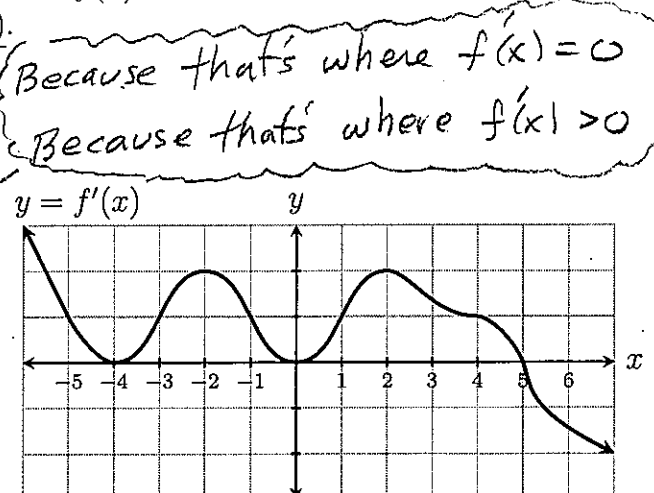 Because that's where f'(x) = 0
Because that's where f'(x) > 0
y = f'(x)
y
x
−5 −4 −3 −2 −1 1 2 3 4 5 6